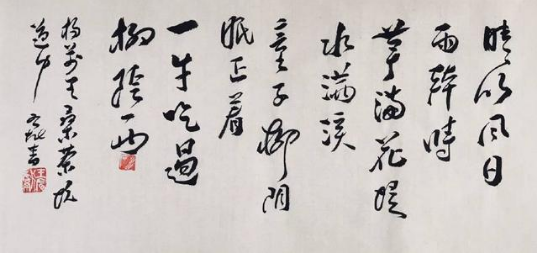 晴明风日
雨幹時
草满花堤
水满溪
童子柳阴
眠正着
一牛吃過
柳陰西
杨萬里桑茶坑
道中